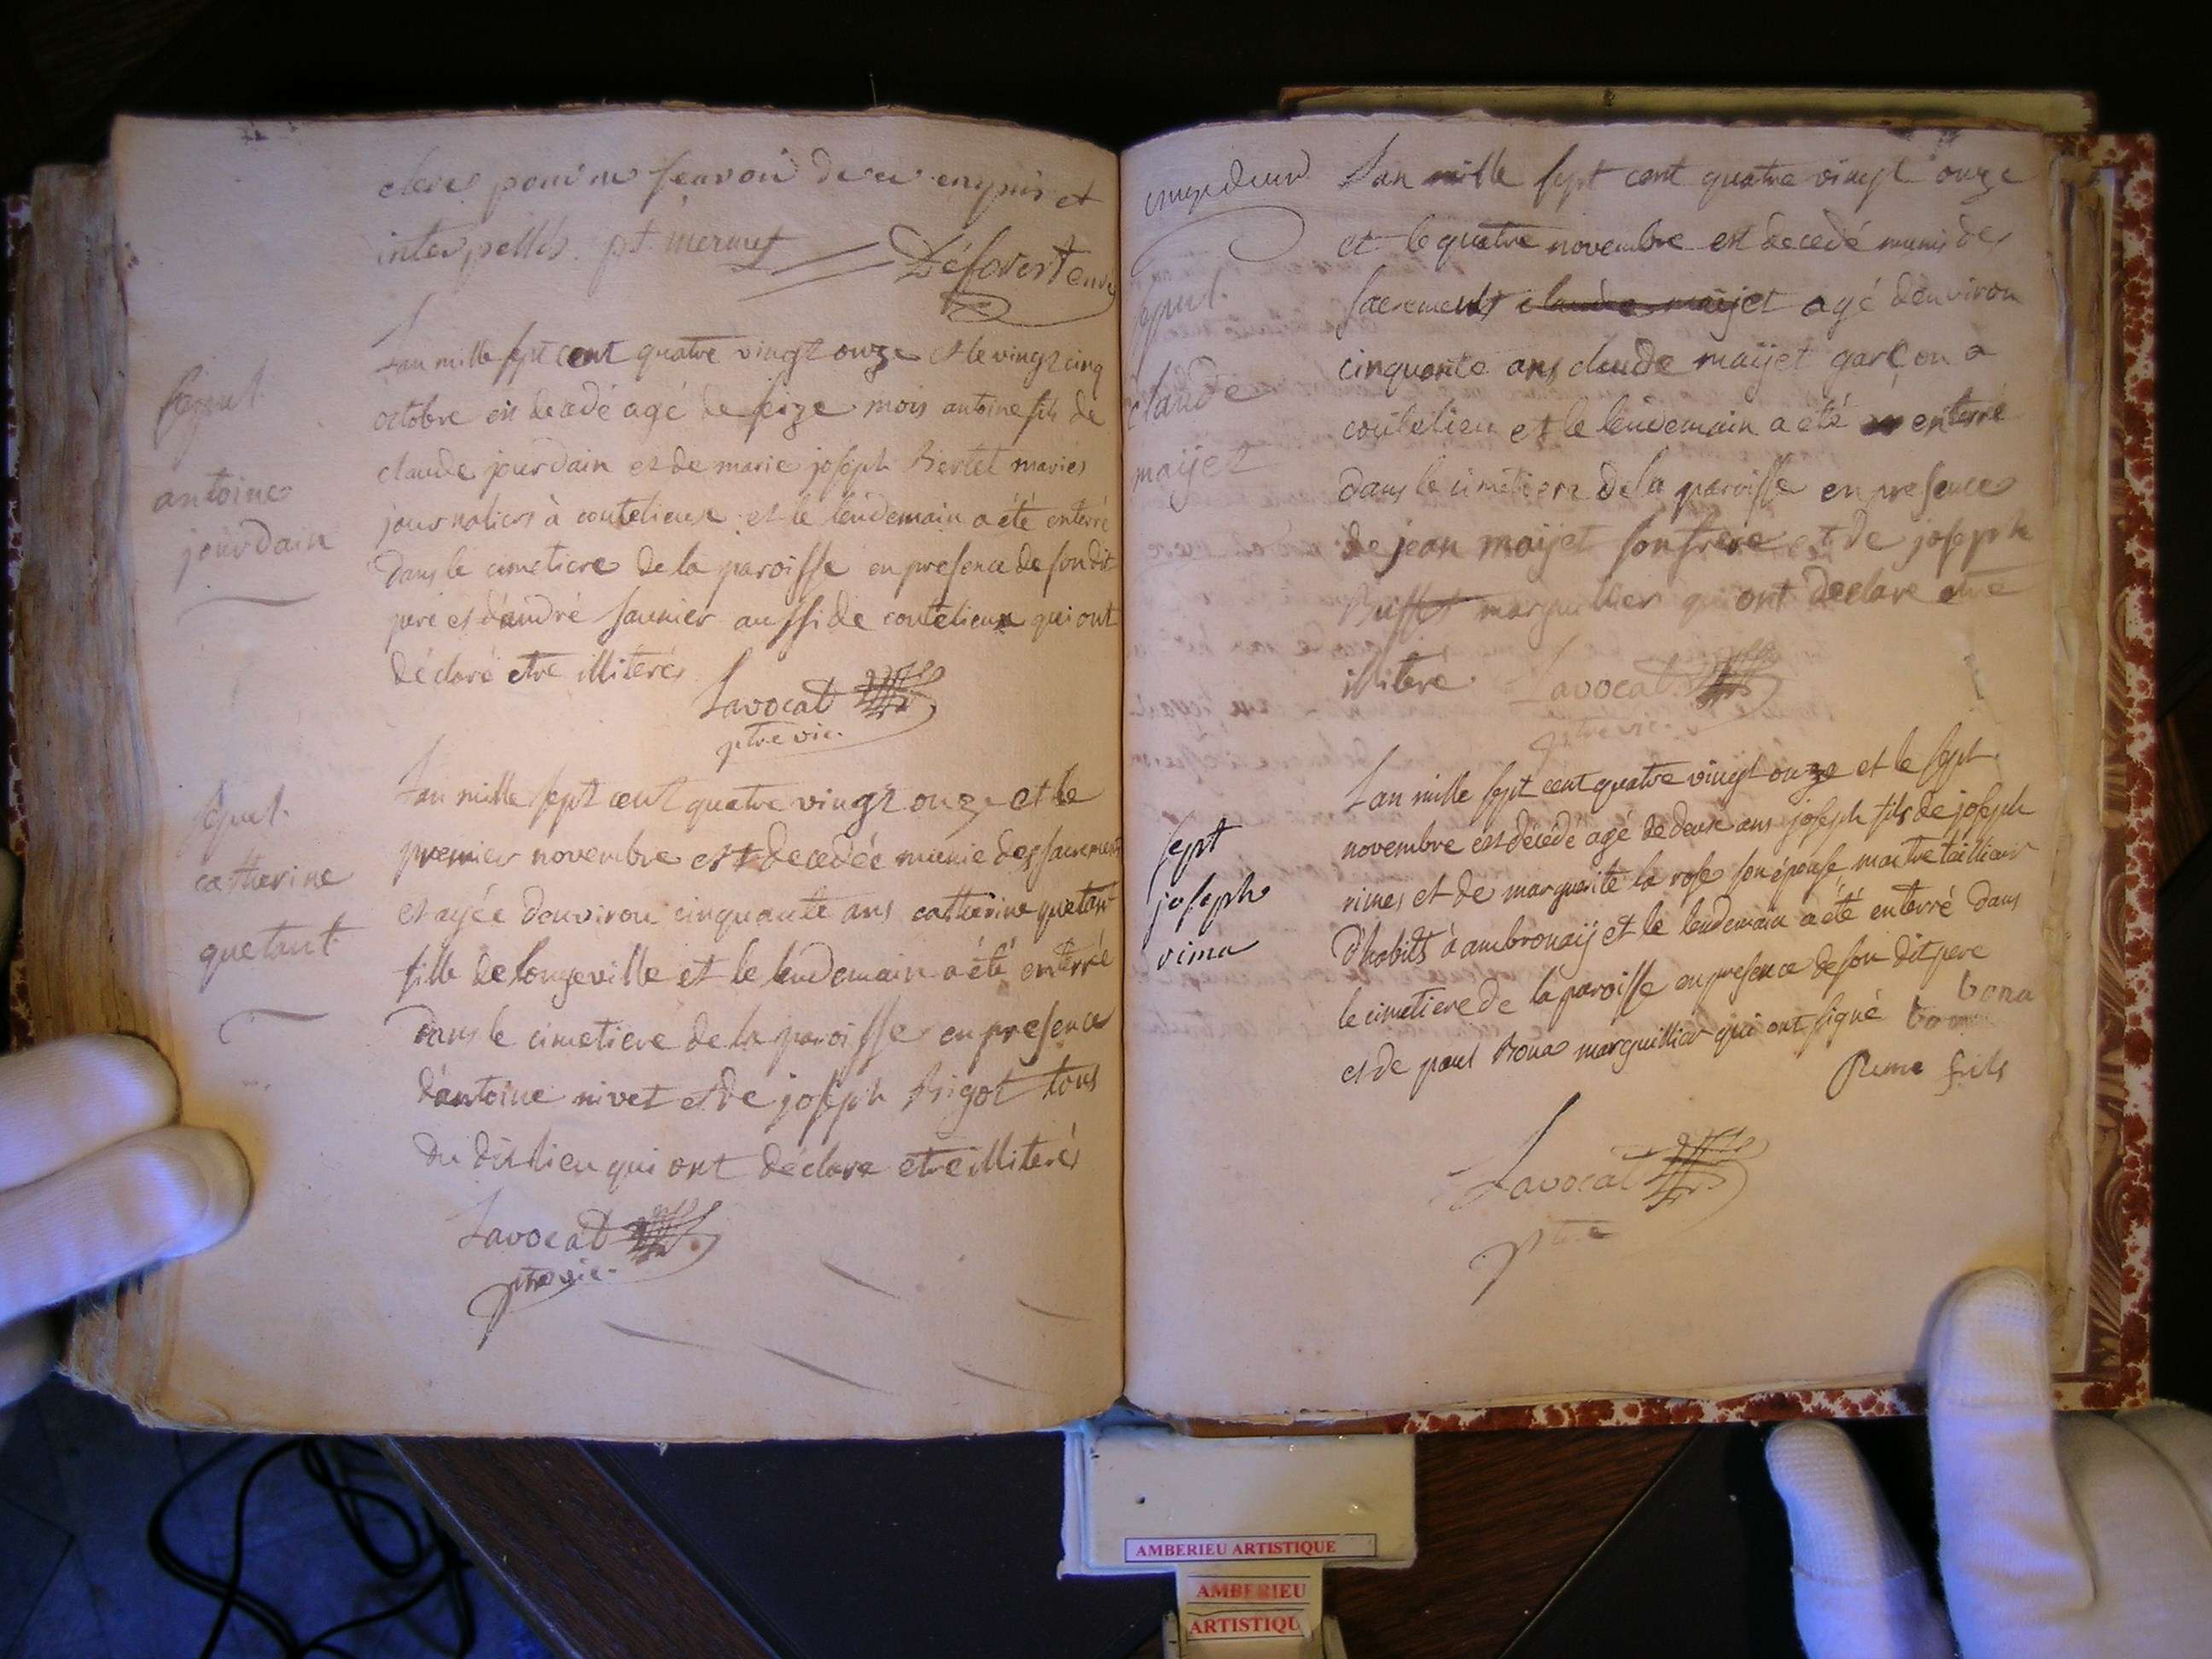 interpellés. pt. mermet
sepul.
antoine
jourdain
Lan mille sept cent quatre vingt onze et le vingt cinq
octobre est decedé agé de seize mois antoine fils de
claude jourdain et de marie joseph Bertet mariés
journaliers à coutelieux et le lendemain a été enterré
dans le cimetiere de la paroisse en presence de son dit
pere et d'andré saunier aussi de coutelieux qui ont
déclaré etre illiterés
Lavocat
ptre vic.
sepul.
catherine
quetant
Lan mille sept cent quatre vingt onze et le
premier novembre est decedée munie des sacrements
et agée denviron cinquante ans catherine quetant
fille de longeville et le lendemain a été enterré
dans le cimetiere de la paroisse en presence
d'antoine nivet et de joseph Bigot tous
du dit lieu qui ont déclare etre illiterés
Lavocat
ptre vic.
sepul.
claude
maijet
Lan mille sept cent quatre vingt onze
et le quatre novembre est decedé munis des
sacrements claude maijet agé denviron
cinquante ans claude maijet garçon a
coutelieu et le lendemain a été enterré
dans le cimetiere de la paroisse en presence
de jean maijet son frere et de joseph
Buffet marguillier qui ont declare etre
illiteré. Lavocat
ptre vic.
sept
joseph
rima
Lan mille sept cent quatre vingt onze et le sept
novembre est décédé agé de deux ans joseph fils de joseph
rimes et de marguerite la rose son épouse maitre tailleur
d'habits à ambronaij et le lendemain a été enterré dans
le cimetiere de la paroisse en presence de son dit pere
et de paul Bona marguillier qui ont signé bona
Rime fils
Lavocat
ptre
AMBERIEU ARTISTIQUE
AMBERIEU
ARTISTIQU